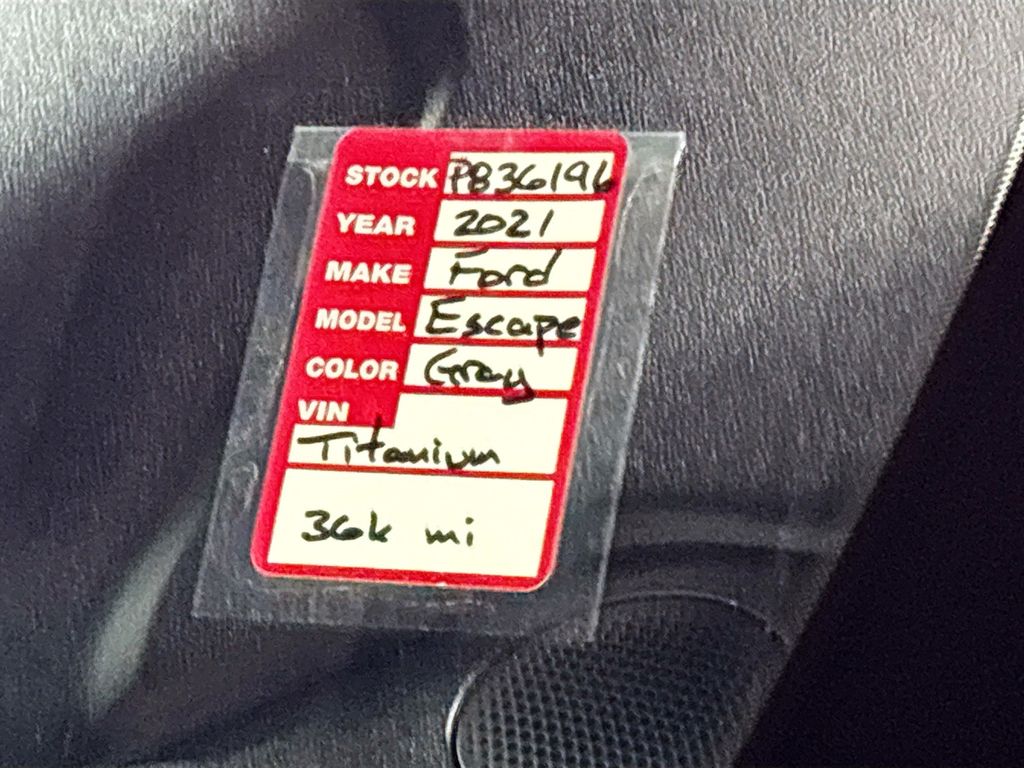 STOCK PB36196
YEAR 2021
MAKE Ford
MODEL Escape
COLOR Gray
VIN
Titanium
36k mi